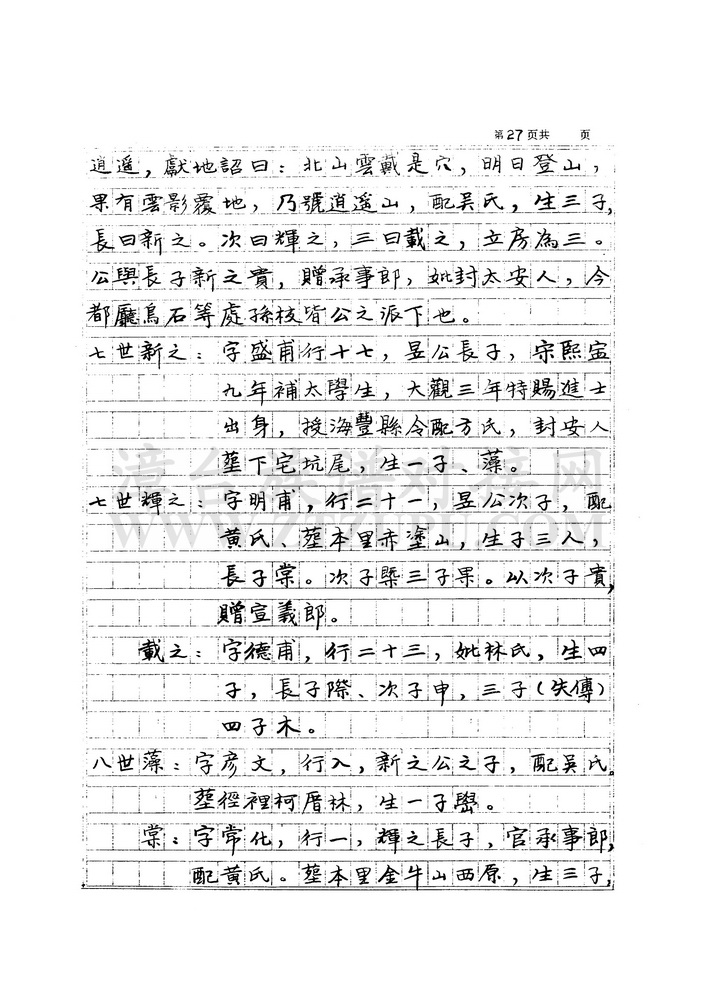 第27页共 页
逍遥，獻地詔曰：北山雲戴是穴，明日登山，
果有雲影覆地，乃號逍遥山，配吴氏，生三子，
長曰新之。次曰輝之，三曰載之，立房為三。
公與長子新之貴，贈承事郎，妣封太安人，今
都廳烏石等處孫枝皆公之派下也。
七世新之：字盛甫行十七，昱公長子，宋熙寍
九年補太學生，大觀三年特賜進士
出身，授海豐縣令配方氏，封安人
塟下宅坑尾，生一子、藻。
七世輝之：字明甫，行二十一，昱公次子，配
黄氏、塟本里赤塗山，生子三人，
長子棠。次子槩三子果。以次子貴，
贈宣義郎。
載之：字德甫，行二十三，妣林氏，生四
子，長子際、次子申，三子（失傳）
四子木。
八世藻：字彦文，行入，新之公之子，配吴氏。
塟徑裡柯厝林，生一子嶨。
棠：字常化，行一，輝之長子，官承事郎，
配黄氏。塟本里金牛山西原，生三子，
漳台族谱对接网
WWW.ZTZUPU.COM